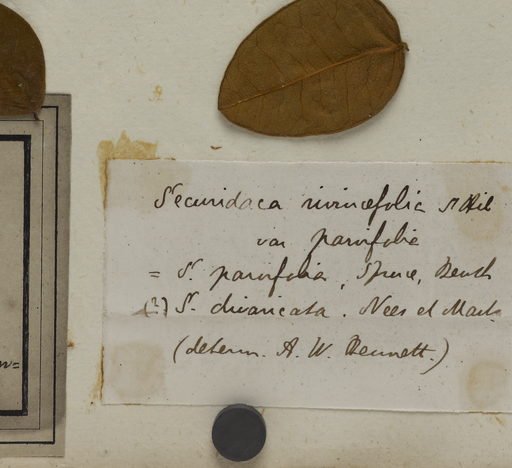 Securidaca rivinæfolia St Hil
var parvifolia
= S. parvifolia, Spruce, Benth
(?) S. divaricata. Nees et Mart.
(determ. A. W. Bennett.)